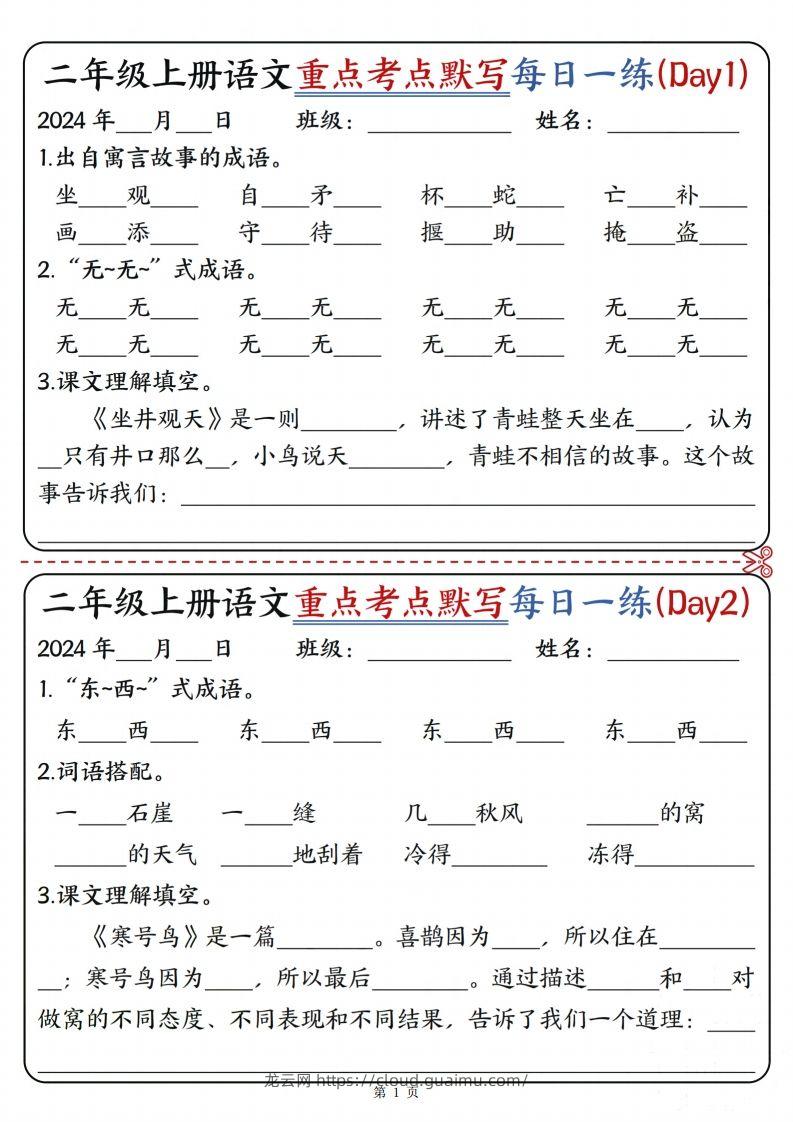 二年级上册语文重点考点默写每日一练(Day1)
2024年___月___日 班级：____________ 姓名：___________
1.出自寓言故事的成语。
坐____观____ 自____矛____ 杯____蛇____ 亡____补____
画____添____ 守____待____ 揠____助____ 掩____盗____
2.“无~无~”式成语。
无____无____ 无____无____ 无____无____ 无____无____
无____无____ 无____无____ 无____无____ 无____无____
3.课文理解填空。
《坐井观天》是一则________，讲述了青蛙整天坐在____，认为
__只有井口那么__，小鸟说天________，青蛙不相信的故事。这个故
事告诉我们：________________________________________________
____________________________________________________________
二年级上册语文重点考点默写每日一练(Day2)
2024年___月___日 班级：____________ 姓名：___________
1.“东~西~”式成语。
东____西____ 东____西____ 东____西____ 东____西____
2.词语搭配。
一____石崖 一____缝 几____秋风 ______的窝
______的天气 ______地刮着 冷得________ 冻得__________
3.课文理解填空。
《寒号鸟》是一篇________。喜鹊因为____，所以住在________
__；寒号鸟因为____，所以最后________。通过描述______和____对
做窝的不同态度、不同表现和不同结果，告诉了我们一个道理：____
____________________________________________________________
龙云网 https://cloud.guaimu.com/
第 1 页